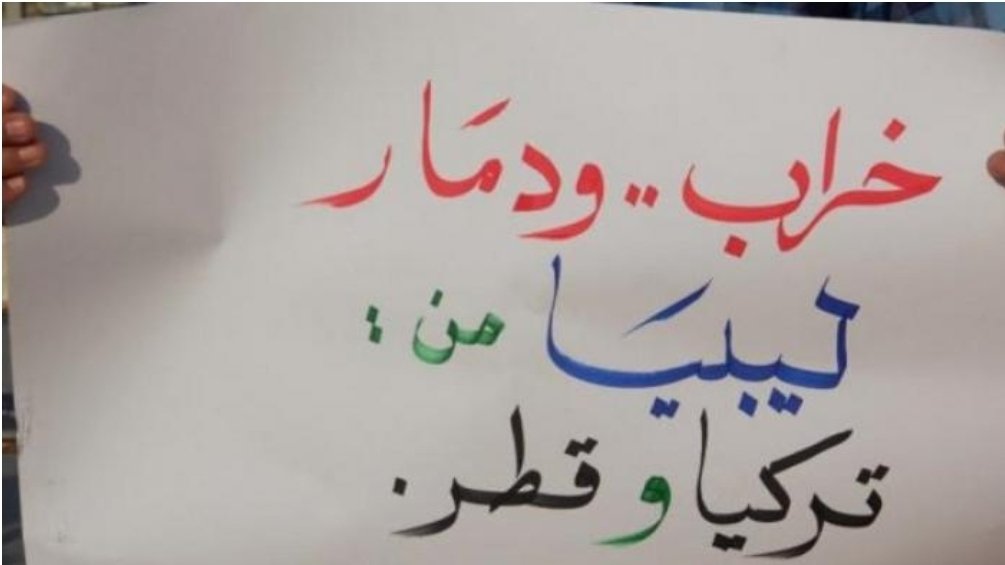 خراب .. ودمَار
ليبيَا من :
تركيا و قطر .